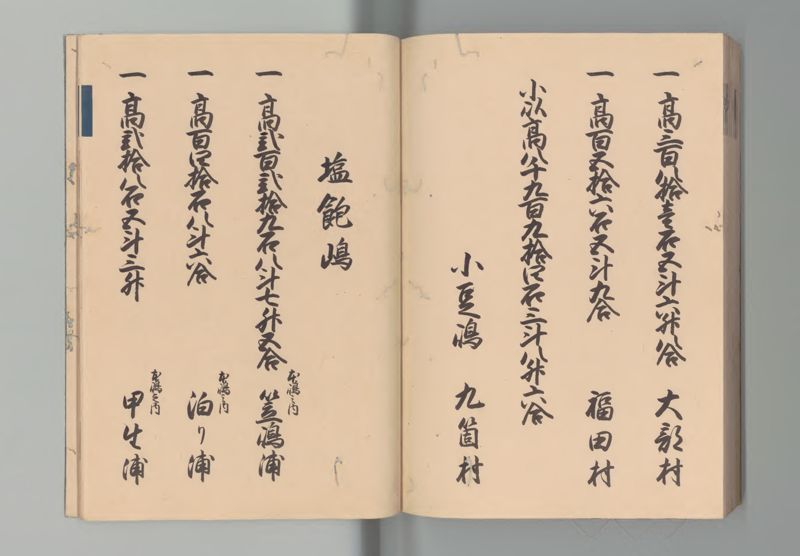 一 高三百八拾壱石五斗六升八合 大部村
一 高百五拾六石五斗九合 福田村
小以高八千九百九拾四石三斗八升六合
小豆嶋 九箇村
塩飽嶋
一 高弐百弐拾九石八斗七升五合 本嶋之内 笠嶋浦
一 高百四拾石八斗六合 本嶋之内 泊り浦
一 高弐拾八石五斗三升 本嶋之内 甲生浦